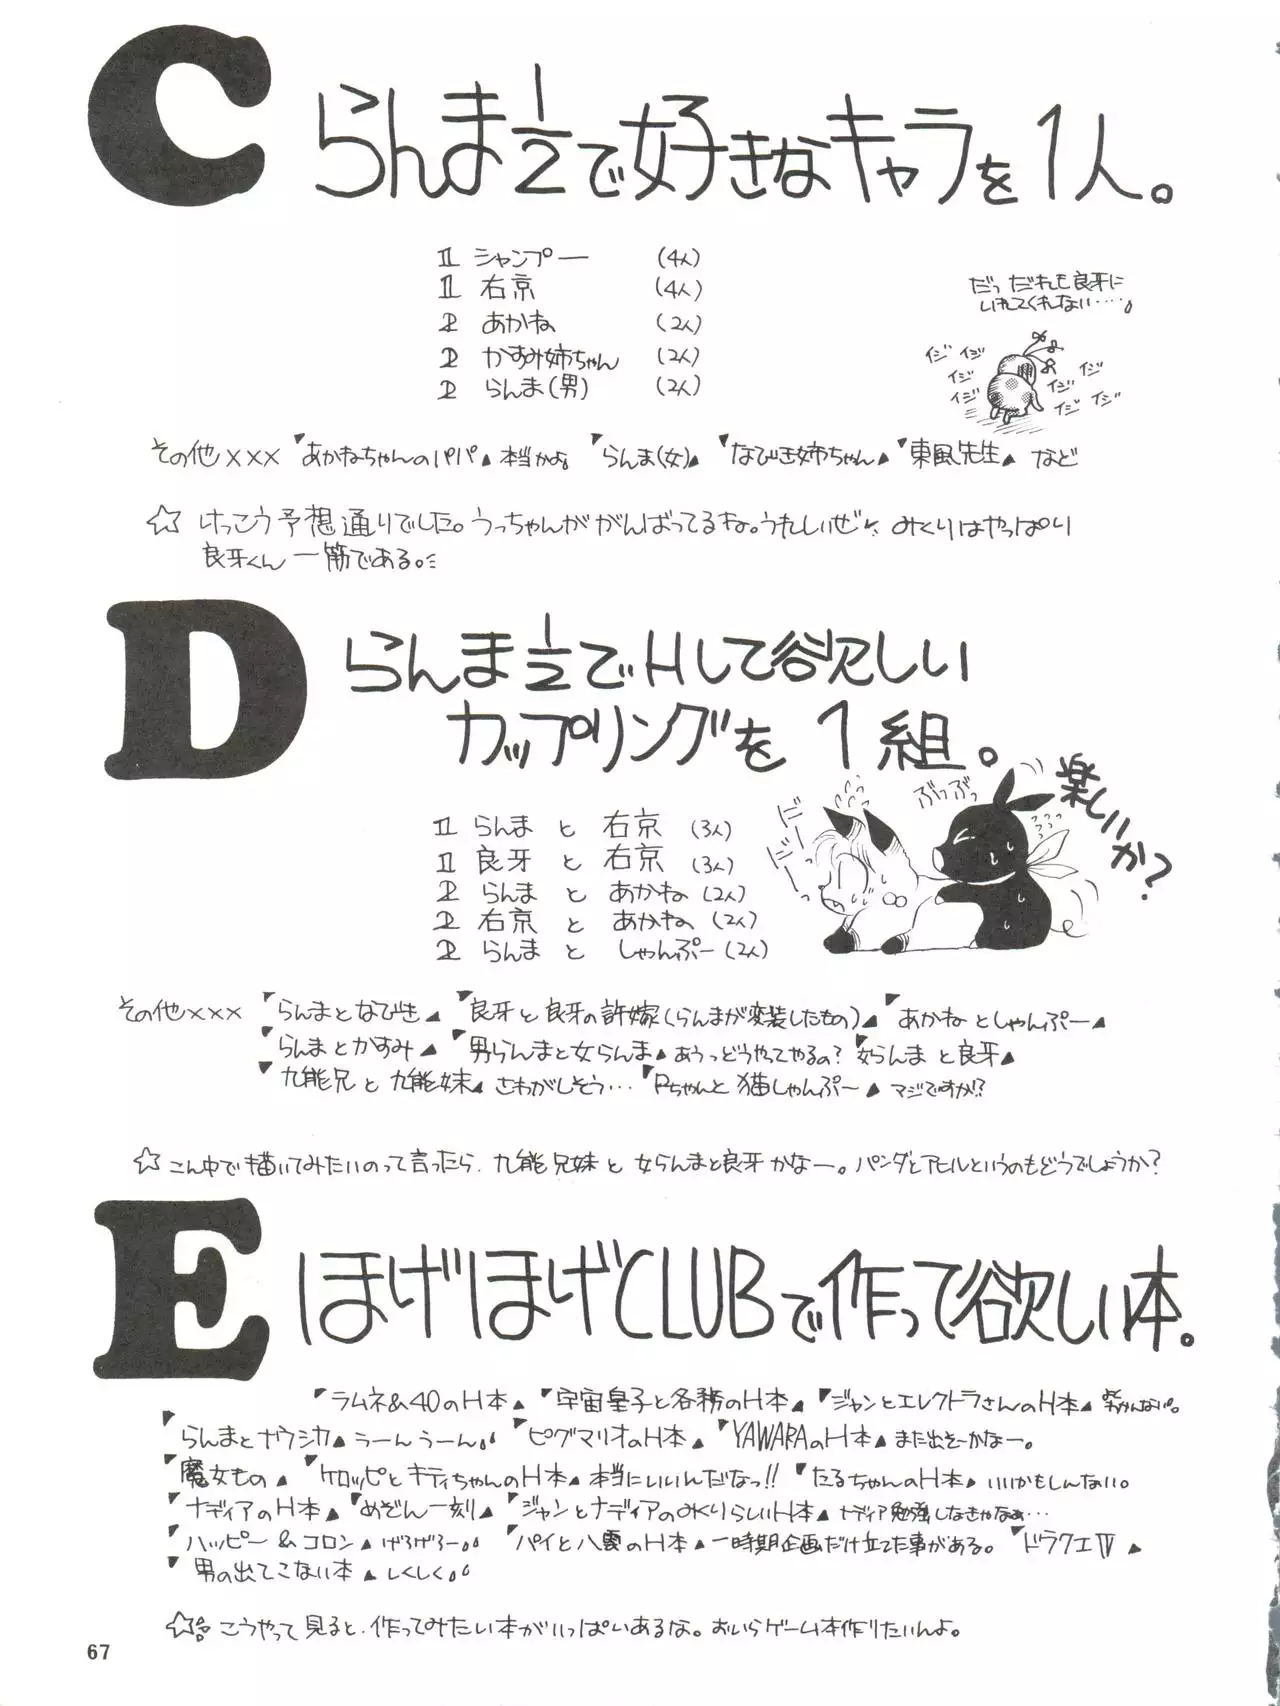 C
らんま1/2で好きなキャラを1人。
1 シャンプー (4人)
1 右京 (4人)
2 あかね (2人)
2 かすみ姉ちゃん (2人)
2 らんま(男) (2人)
だっ だれも良牙に
いれてくれない・・・・。
イジ イジ イジ イジ イジ イジ イジ イジ
その他××× 「あかねちゃんのパパ」本当かよ。「らんま(女)」「なびき姉ちゃん」「東風先生」など
☆ けっこう予想通りでした。うっちゃんががんばってるね。うれしいぜ みくりはやっぱり
良牙くん一筋である。
D
らんま1/2でHして欲しい
カップリングを1組。
1 らんま と 右京 (3人)
1 良牙 と 右京 (3人)
2 らんま と あかね (2人)
2 右京 と あかね (2人)
2 らんま と しゃんぷー (2人)
ぶっぶっ
楽しいか?
その他××× 「らんまとなびき」「良牙と良牙の許嫁(らんまが変装したもの)」「あかねとしゃんぷー」
「らんまとかすみ」「男らんまと女らんま」あうっどうやってやるの?「女らんまと良牙」
「九能兄と九能妹」さわがしそう…「Pちゃんと猫しゃんぷー」マジですか!?
☆ こん中で描いてみたいのって言ったら、九能兄妹と女らんまと良牙かなー。パンダとアヒルというのもどうでしょうか?
E
ほげほげCLUBで作って欲しい本。
「ラムネ&40のH本」「宇宙皇子と各務のH本」「ジャンとエレクトラさんのH本」
「らんまとナウシカ」うーんうーん。「ピグマリオのH本」「YAWARAのH本」また出そーかなー。
「魔女もの」「ケロッピとキティちゃんのH本」本当にいいんだなっ!!「たるちゃんのH本」いいかもしんない。
「ナディアのH本」「めぞん一刻」「ジャンとナディアのみくりらしいH本」ナディア勉強しなきゃなぁ…
「ハッピー&コロン」げろげろー。「パイと八雲のH本」一時期企画だけ立てた事がある。「ドラクエⅣ」
「男の出てこない本」しくしく。
☆ こうやって見ると、作ってみたい本がいっぱいあるな。おいらゲーム本作りたいんよ。
67